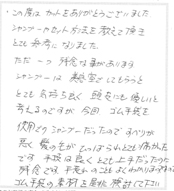 ・この度はカットをありがとうございました。
シャンプーやカット方法を教えて頂き
とても参考になりました。
ただ一つ残念な事があります
シャンプーは美容室でしてもらうと
とても気持ち良く頭皮にも優しいと
考えるのですが今回、ゴム手袋を
使用でシャンプーだったのですべりが
悪く髪の毛が
とても痛かった
です 手技は良くとても上手だったので
残念です 手荒れのこともよくわかりますが
ゴム手袋の